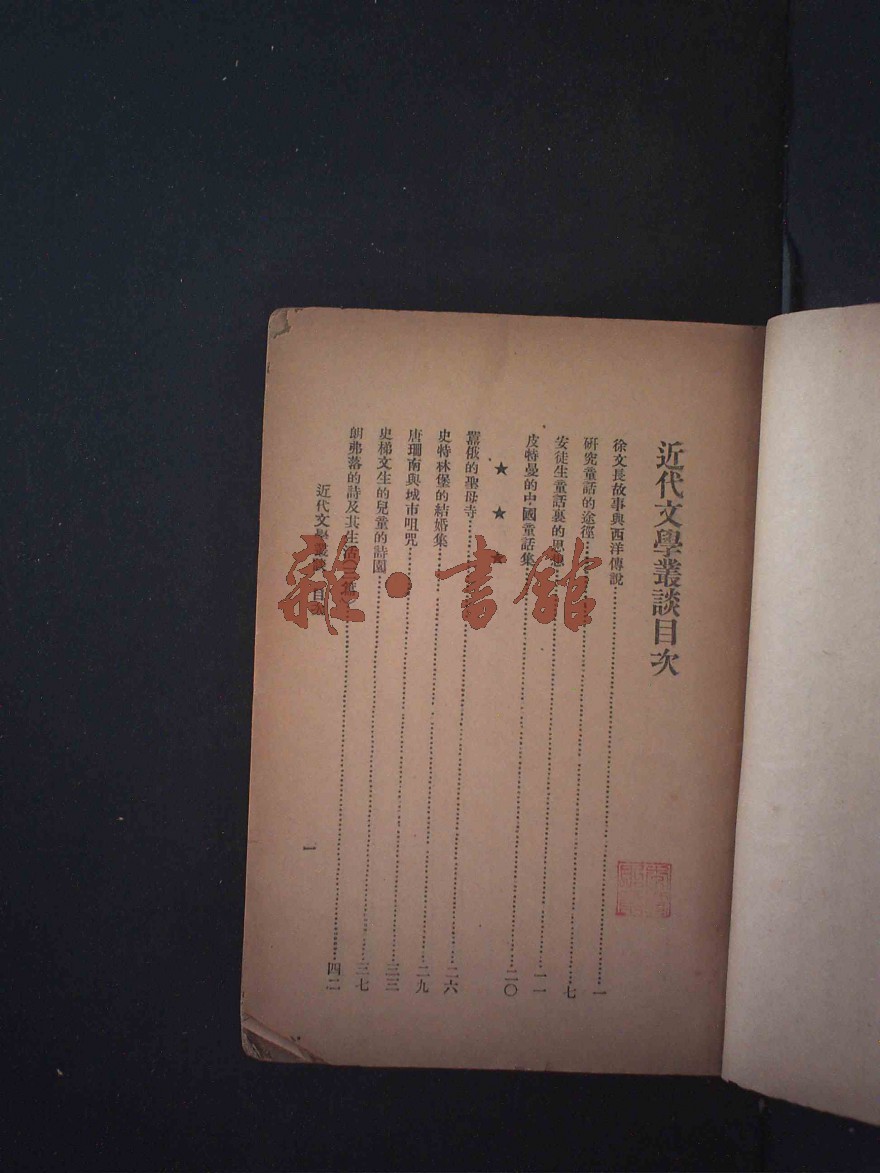 近代文學叢談目次
徐文長故事與西洋傳說……一
研究童話的途徑……七
安徒生童話裏的思想……一一
皮特曼的中國童話集……二〇
★ ★ ★
囂俄的聖母寺……二六
史特林堡的結婚集……二九
唐珊南與城市咀咒……三三
史梯文生的兒童的詩園……三七
朗弗落的詩及其生活……四二
近代文學叢談 目次
一
雜·書館